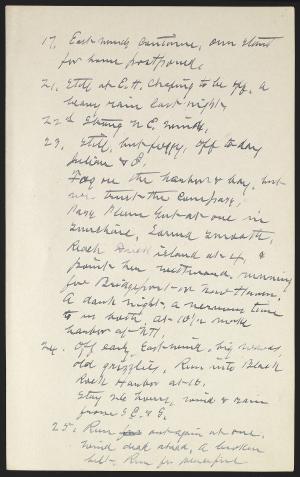 17. East winds continue, our start
for home postponed.
21. Still at E.H. Chafing to be off, a
heavy rain last night,
22d Strong N.E. winds.
23, Still, but foggy, off to day
Julian & I.
Fog on the harbor & bay, but
we trust the compass,
Pass Plum Gut at one in
sunshine, Sound smooth,
Rock island at 4, &
point her westward, running
for Bridgeport or New Haven.
A dark night, a nervous time
to us both, at 10 1/2 make
harbor at N.H.
24. Off early, East wind, big waves,
old grizzlies, Run into Black
Rock Harbor at 10.
Stay six hours, wind & rain
from S.E. & S.
25. Run out again at one,
wind dead ahead, a broken
belt, Run for